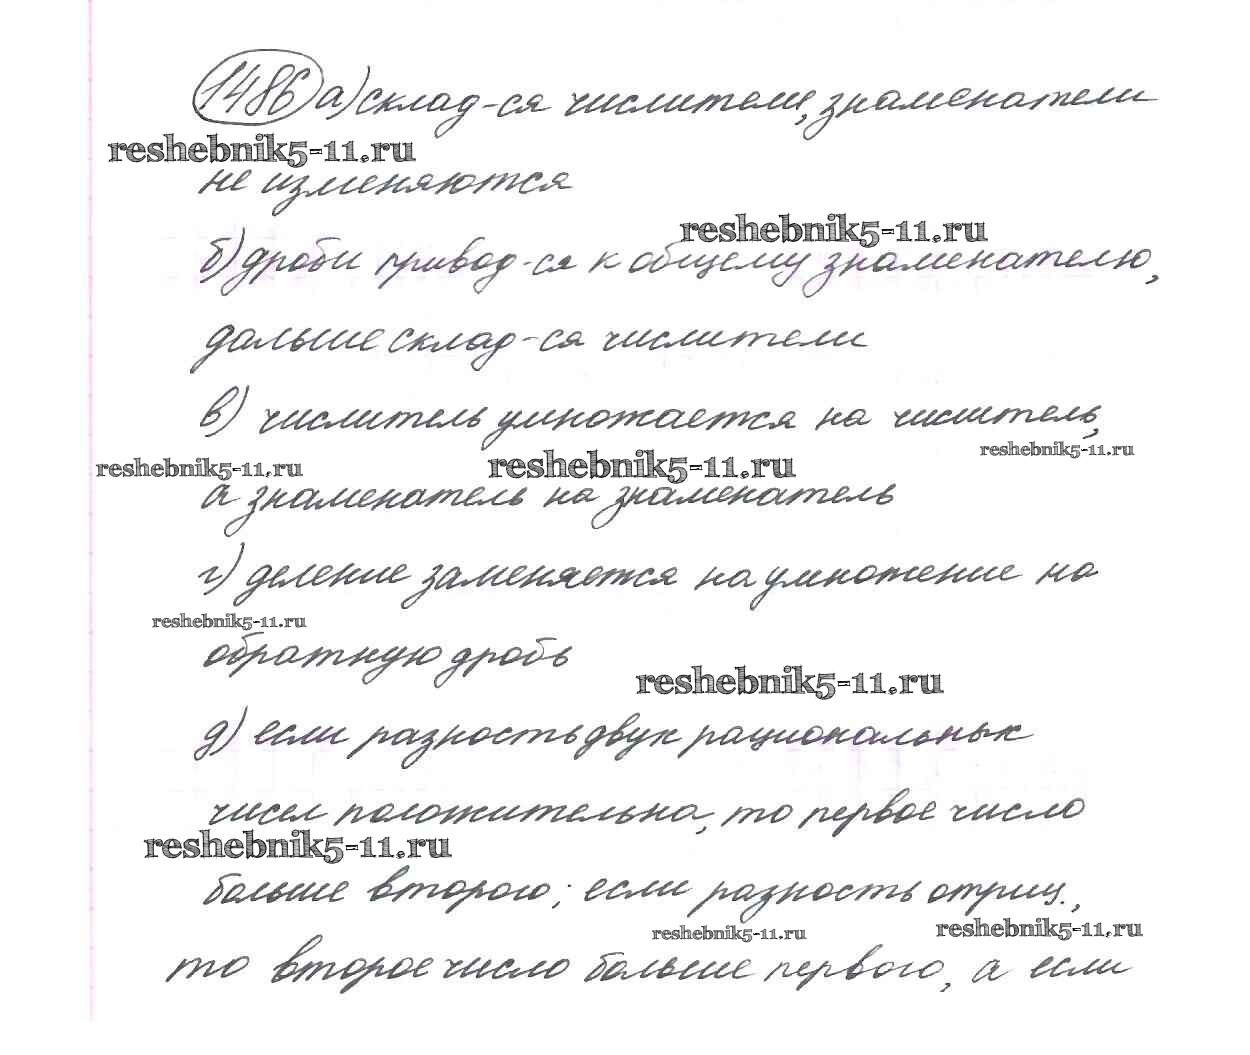 1486 а) склад-ся числители, знаменатели
reshebnik5-11.ru
не изменяются
reshebnik5-11.ru
б) дроби привод-ся к общему знаменателю,
дальше склад-ся числители
в) числитель умножается на числитель,
reshebnik5-11.ru
reshebnik5-11.ru reshebnik5-11.ru
а знаменатель на знаменатель
г) деление заменяется на умножение на
reshebnik5-11.ru
обратную дробь
reshebnik5-11.ru
д) если разность двух рациональных
чисел положительна, то первое число
reshebnik5-11.ru
больше второго; если разность отриц.,
reshebnik5-11.ru reshebnik5-11.ru
то второе число больше первого, а если